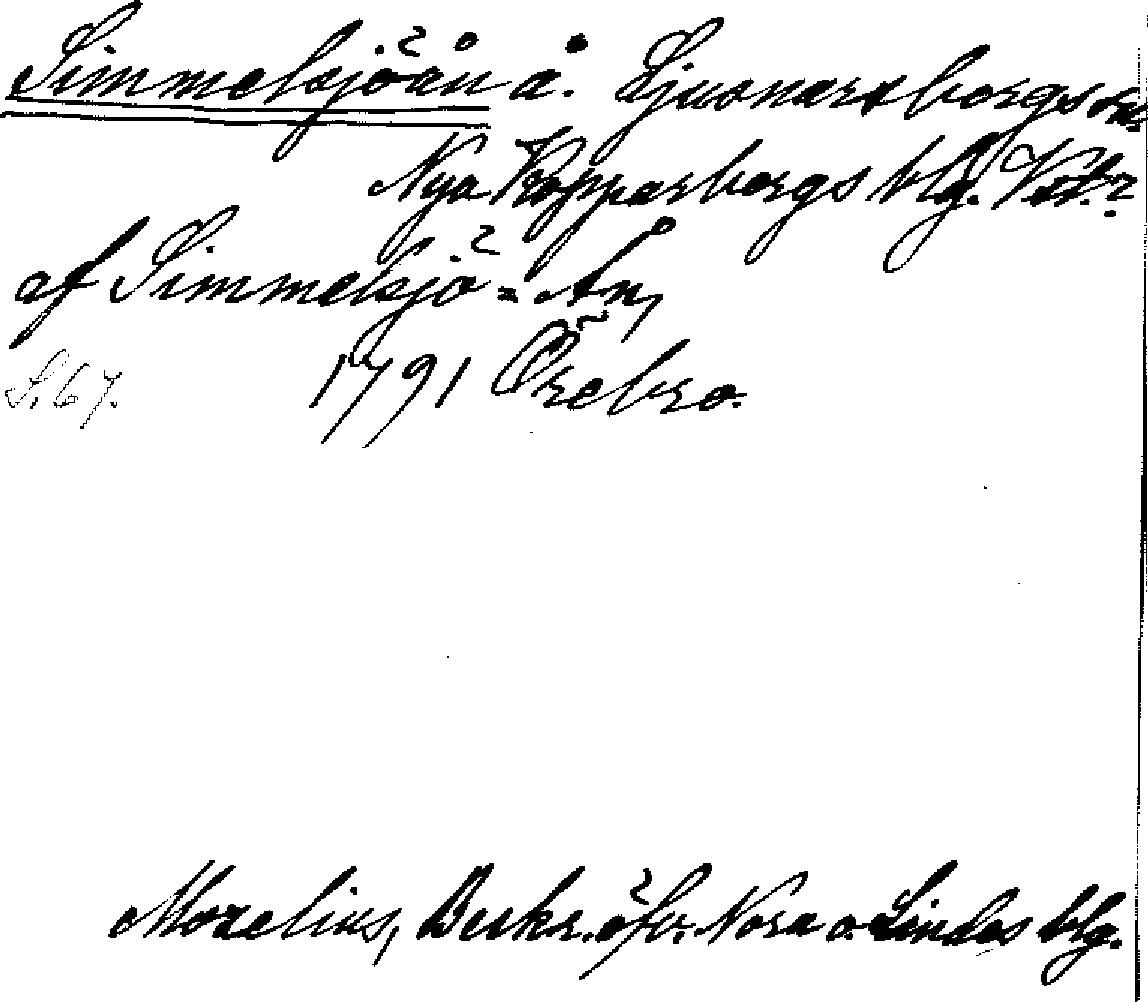 Simmelsjöån å. Ljusnarsbergs sn,
Nya Kopparbergs blg. Vstm.?
af Simmelsjö-Ån,
S. 67. 1791 Örebro.
Morelius, Beskr. öfv. Nora o. Lindes blg.